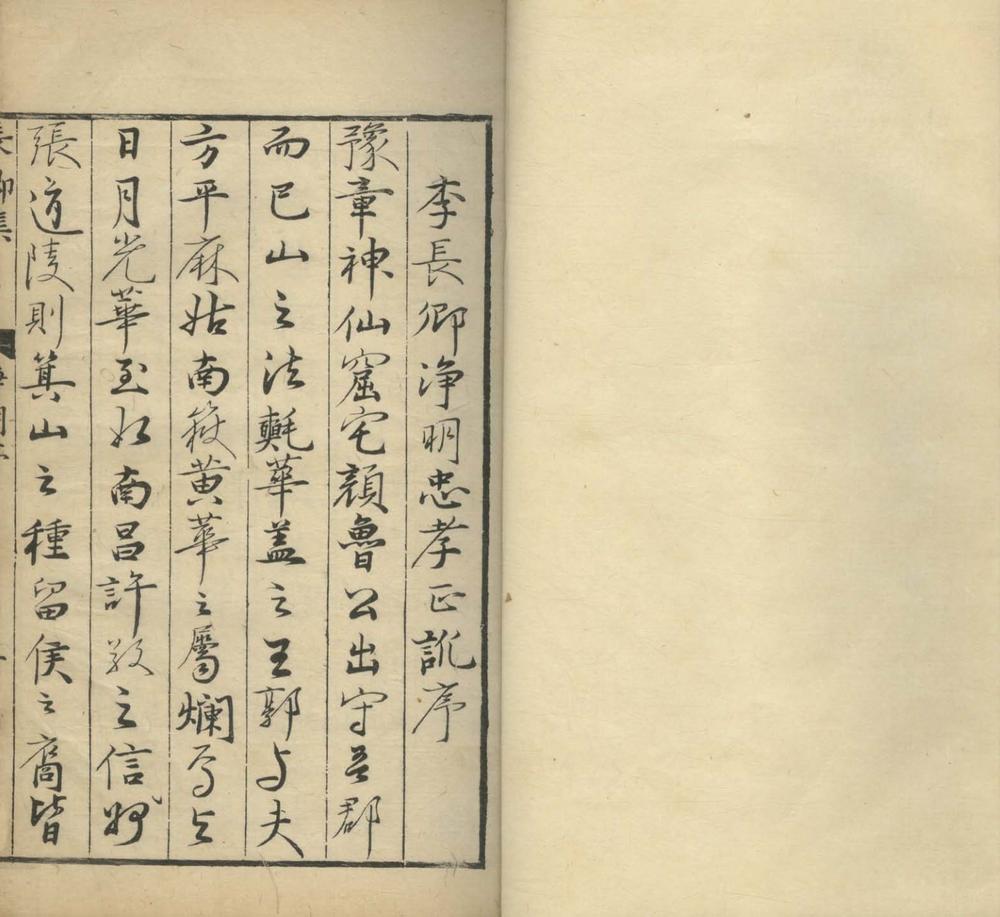 李長卿淨明忠孝正訛序
豫章神仙窟宅顏魯公出守吾郡
而已山之法甎華盖之王郭与夫
方平麻姑南筱黄華之屬爛焉与
日月光華至如南昌許敬之信州
張道陵則箕山之種留侯之裔皆
長卿集